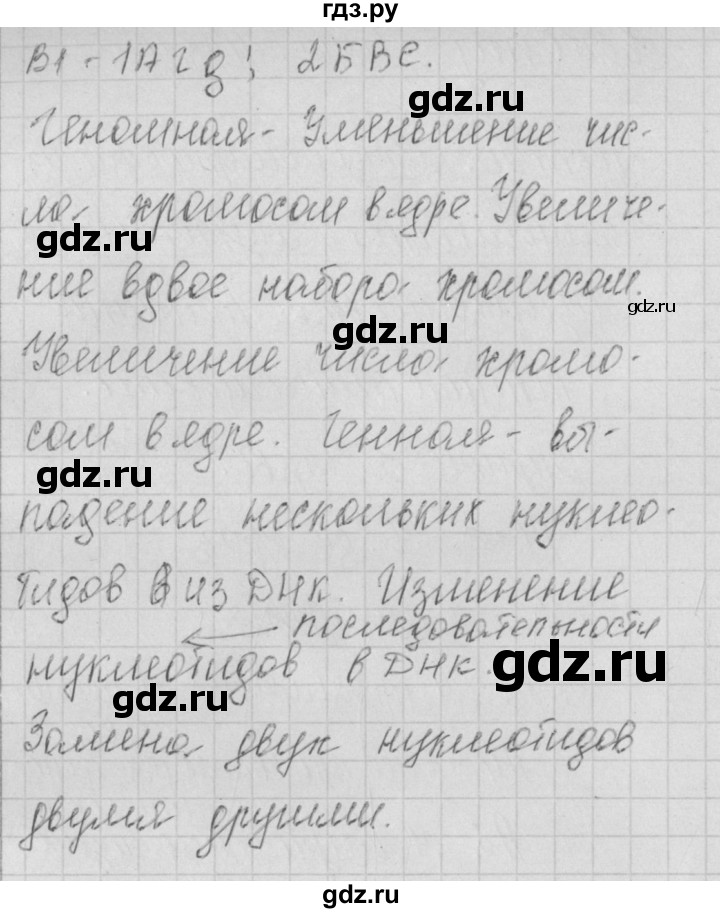 гдз.ру
В1 - 1А г д; 2БВЕ.
gdz.ru
Геномная - Уменьшение чис-
ла хромосом в ядре. Увеличе-
gdz.ru
ние вдвое набора хромосом.
gdz.ru
gdz.ru
Увеличение числа хромо-
сом в ядре. Генная - вы-
gdz.ru
падение нескольких нуклео-
тидов из ДНК. Изменение
последовательности
нуклеотидов в ДНК.
gdz.ru
gdz.ru
Замена двух нуклеотидов
двумя другими.
gdz.ru
gdz.ru